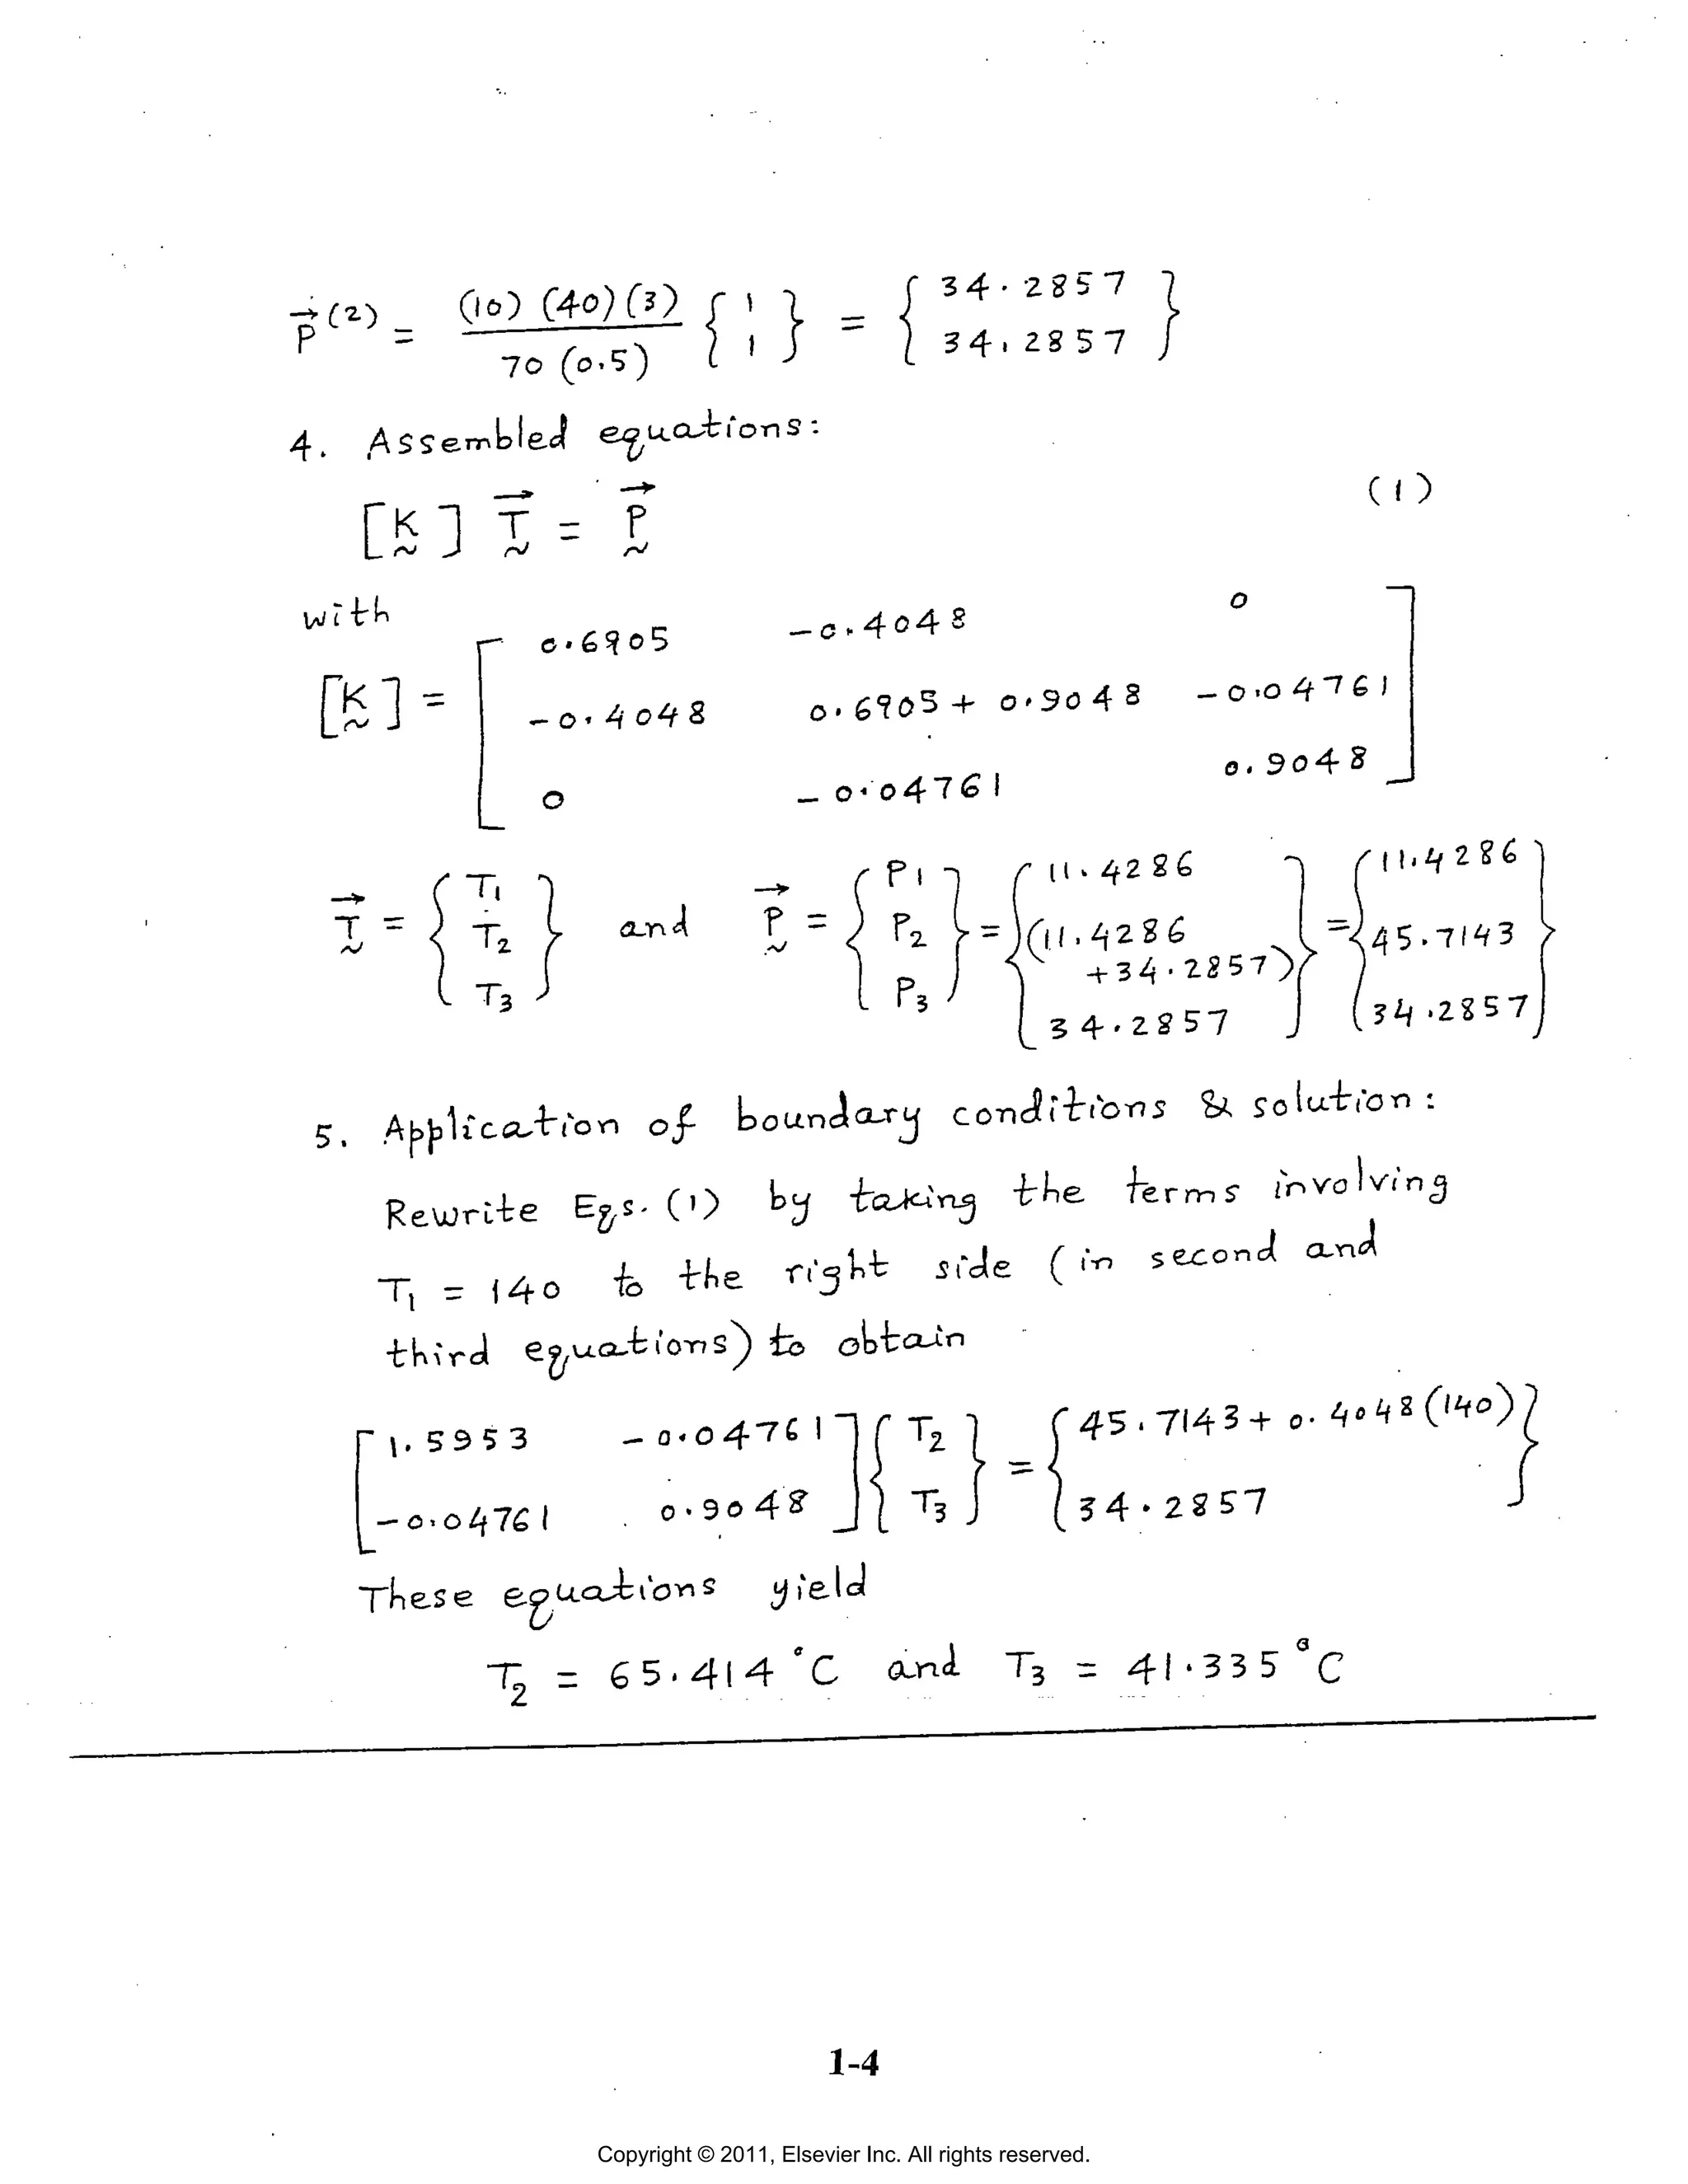 P⃗^(2) = (10) (40) (3) / 70 (0.5) { 1 1 } = { 34.2857 34.2857 }
4. Assembled equations:
[K] T⃗ = P⃗ (1)
with
[K] = [ 0.6905 -0.4048 0
-0.4048 0.6905 + 0.9048 -0.04761
0 -0.04761 0.9048 ]
T⃗ = { T1 T2 T3 } and P⃗ = { P1 P2 P3 } = { 11.4286 (11.4286 + 34.2857) 34.2857 } = { 11.4286 45.7143 34.2857 }
5. Application of boundary conditions & solution:
Rewrite Eqs. (1) by taking the terms involving
T1 = 140 to the right side (in second and
third equations) to obtain
[ 1.5953 -0.04761 ] { T2 } = { 45.7143 + 0.4048 (140) }
[ -0.04761 0.9048 ] { T3 } { 34.2857 }
These equations yield
T2 = 65.414 °C and T3 = 41.335 °C
1-4
Copyright © 2011, Elsevier Inc. All rights reserved.